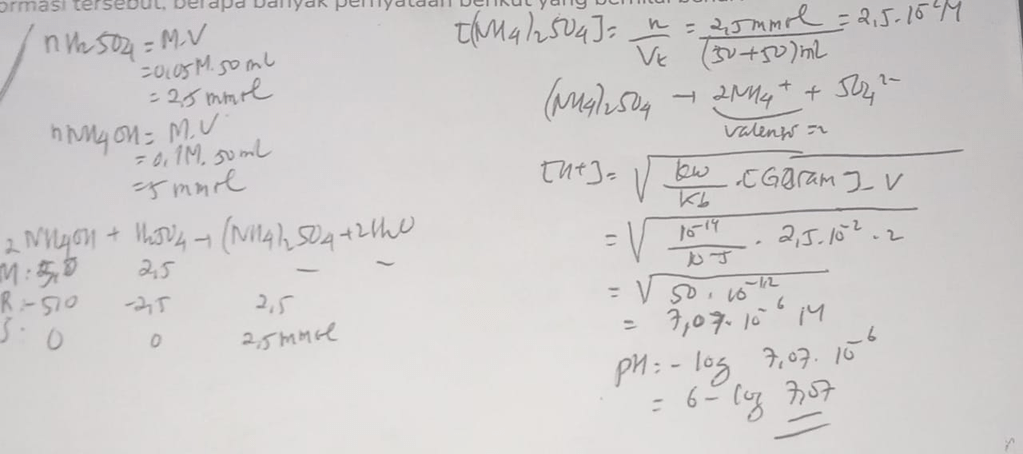 ormasi tersebut, berapa banyak pernyataan berikut yang
n H2SO4 = M.V
= 0,05M. 50 ml
= 2,5 mmol
n NH4OH = M.V
= 0,1M. 50 ml
= 5 mmol
2 NH4OH + H2SO4 → (NH4)2SO4 + 2H2O
M: 5,0 2,5 – –
R: -5,0 -2,5 2,5
S: 0 0 2,5 mmol
[(NH4)2SO4] = n/Vt = 2,5 mmol/(50+50) ml = 2,5.10⁻²M
(NH4)2SO4 → 2NH4⁺ + SO4²⁻
valensi = 2
[H+] = √ Kw/Kb . [Garam] . V
= √ 10⁻¹⁴/10⁻⁵ . 2,5.10⁻² . 2
= √ 50 . 10⁻¹²
= 7,07. 10⁻⁶ M
pH = - log 7,07. 10⁻⁶
= 6 - log 7,07